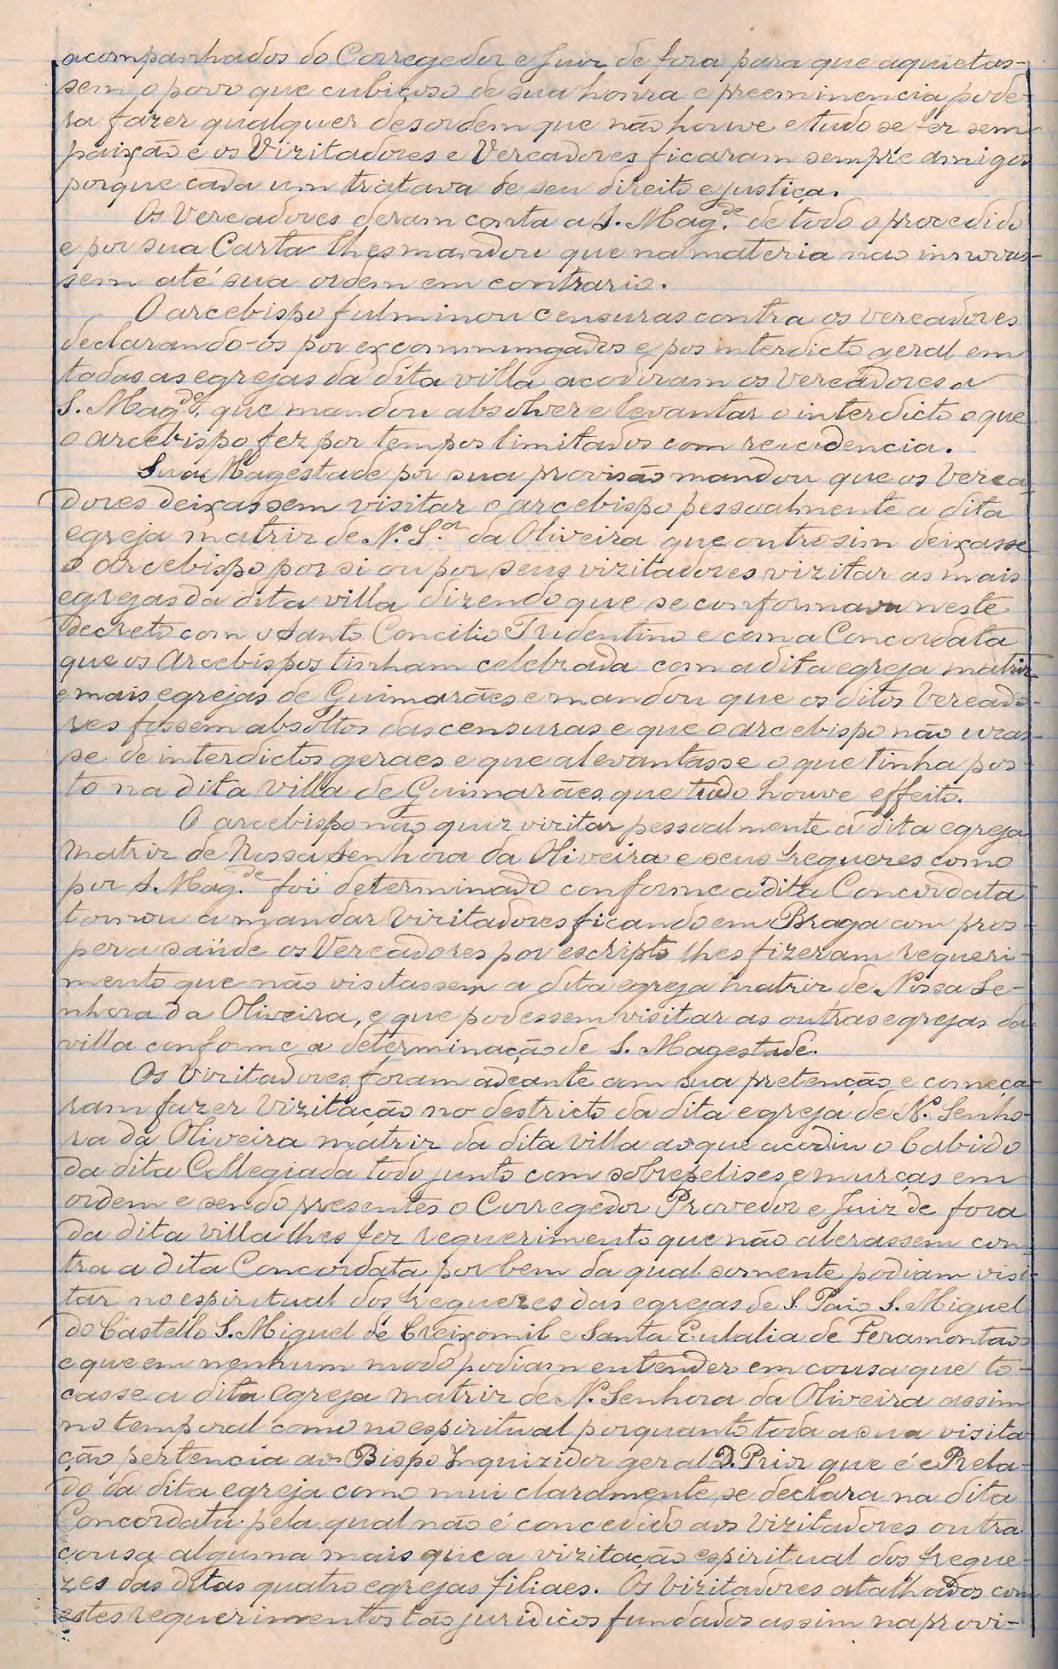 acompanhados do Corregedor e Juiz de fora para que aquietas-
sem o povo que cubiçoso de sua honra e preeminencia pode-
ra fazer qualquer desordem que não houve e tudo se fez sem
paixão e os Vizitadores e Vereadores ficaram sempre amigos
porque cada um tratava de seu direito e justiça.
Os Vereadores deram conta a S. Mag.de de todo o procedido
e por sua Carta lhes mandou que na materia não innovas-
sem até sua ordem em contrario.
O arcebispo fulminou censuras contra os vereadores
declarando-os por excommungados e pos interdicto geral em
todas as egrejas da dita villa acodiram os Vereadores a
S. Mag.de, que mandou absolver e levantar o interdicto o que
o arcebispo fez por tempos limitados com reincidencia.
Sua Magestade por sua provisão mandou que os Verea-
dores deixassem visitar o arcebispo pessoalmente a dita
egreja matriz de N. S.ra da Oliveira que outrosim deixasse
o arcebispo por si ou por seus vizitadores vizitar as mais
egrejas da dita villa dizendo que se conformava neste
decreto com o Santo Concilio Tridentino e com a Concordata
que os Arcebispos tinham celebrada com a dita egreja matriz
e mais egrejas de Guimarães e mandou que os ditos Vereado-
res fossem absoltos das censuras e que o arcebispo não uzas-
se de interdictos geraes e que alevantasse o que tinha pos-
to na dita villa de Guimarães que tudo houve effeito.
O arcebispo não quiz vizitar pessoalmente a dita egreja
Matriz de Nossa Senhora da Oliveira e seus freguezes como
por S. Mag.de foi determinado conforme a dita Concordata
tornou a mandar Vizitadores ficando em Braga com pros-
pera saúde os Vereadores por escripto lhes fizeram requeri-
mento que não visitassem a dita egreja Matriz de Nossa Se-
nhora da Oliveira, e que podessem visitar as outras egrejas da
villa conforme a determinação de S. Magestade.
Os Vizitadores foram adeante com sua pretenção e começa-
ram fazer Vizitação no destricto da dita egreja de N. Senho-
ra da Oliveira matriz da dita villa ao que acodiu o Cabido
da dita Collegiada todo junto com sobrepelises e murças em
ordem e sendo presentes o Corregedor Provedor e Juiz de fora
da dita villa lhes fez requerimento que não alterassem con-
tra a dita Concordata por bem da qual somente podiam visi-
tar no espiritual dos freguezes das egrejas de S. Paio S. Miguel
do Castello S. Miguel de Creixomil e Santa Eulalia de Feramontãos
e que em nenhum modo podiam entender em cousa que to-
casse a dita Egreja Matriz de N. Senhora da Oliveira assim
no temporal como no espiritual porquanto toda a sua visita-
ção pertencia ao Bispo Inquizidor geral D. Prior que é e Prela-
do da dita egreja como mui claramente se declara na dita
Concordata pela qual não é concedido aos Vizitadores outra
cousa alguma mais que a vizitação espiritual dos fregue-
zes das ditas quatro egrejas filiaes. Os Vizitadores atalhados com
estes requerimentos tão juridicos fundados assim na provi-